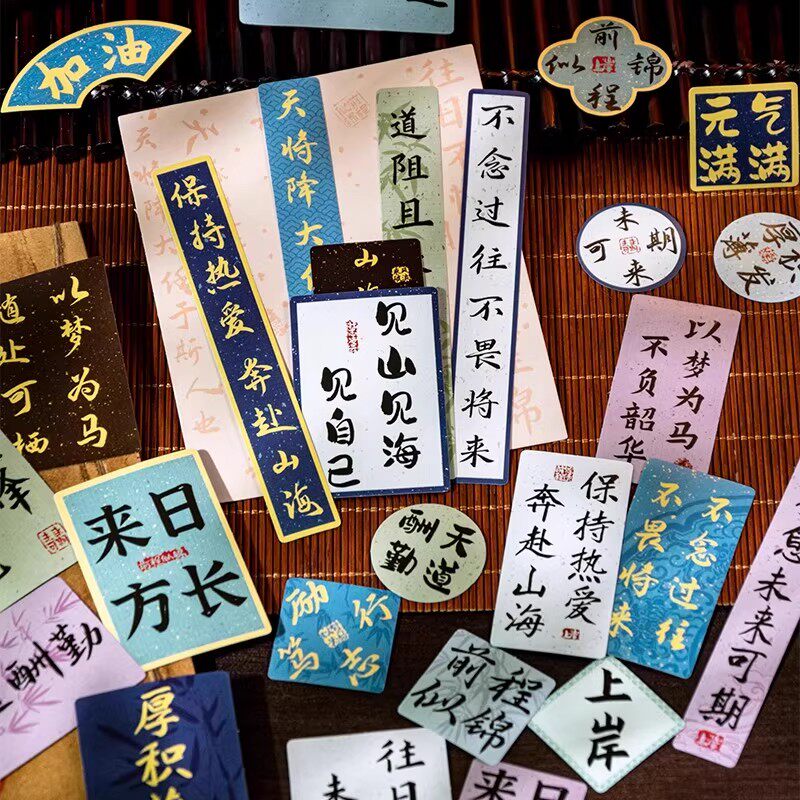 加油
前程
似锦
元气
满满
天将降大
道阻且
不念过往不畏将来
保持热爱 奔赴山海
山海
见山见海
见自己
未来
可期
厚积
以梦为马
随处可栖
以梦为马
不负韶华
天将降大任于斯人也
往日不
来日
方长
天道
酬勤
保持热爱
奔赴山海
不念过往
不畏将来
未来可期
励志
笃行
前程
似锦
上岸
酬勤
厚积
往日
未来
来日